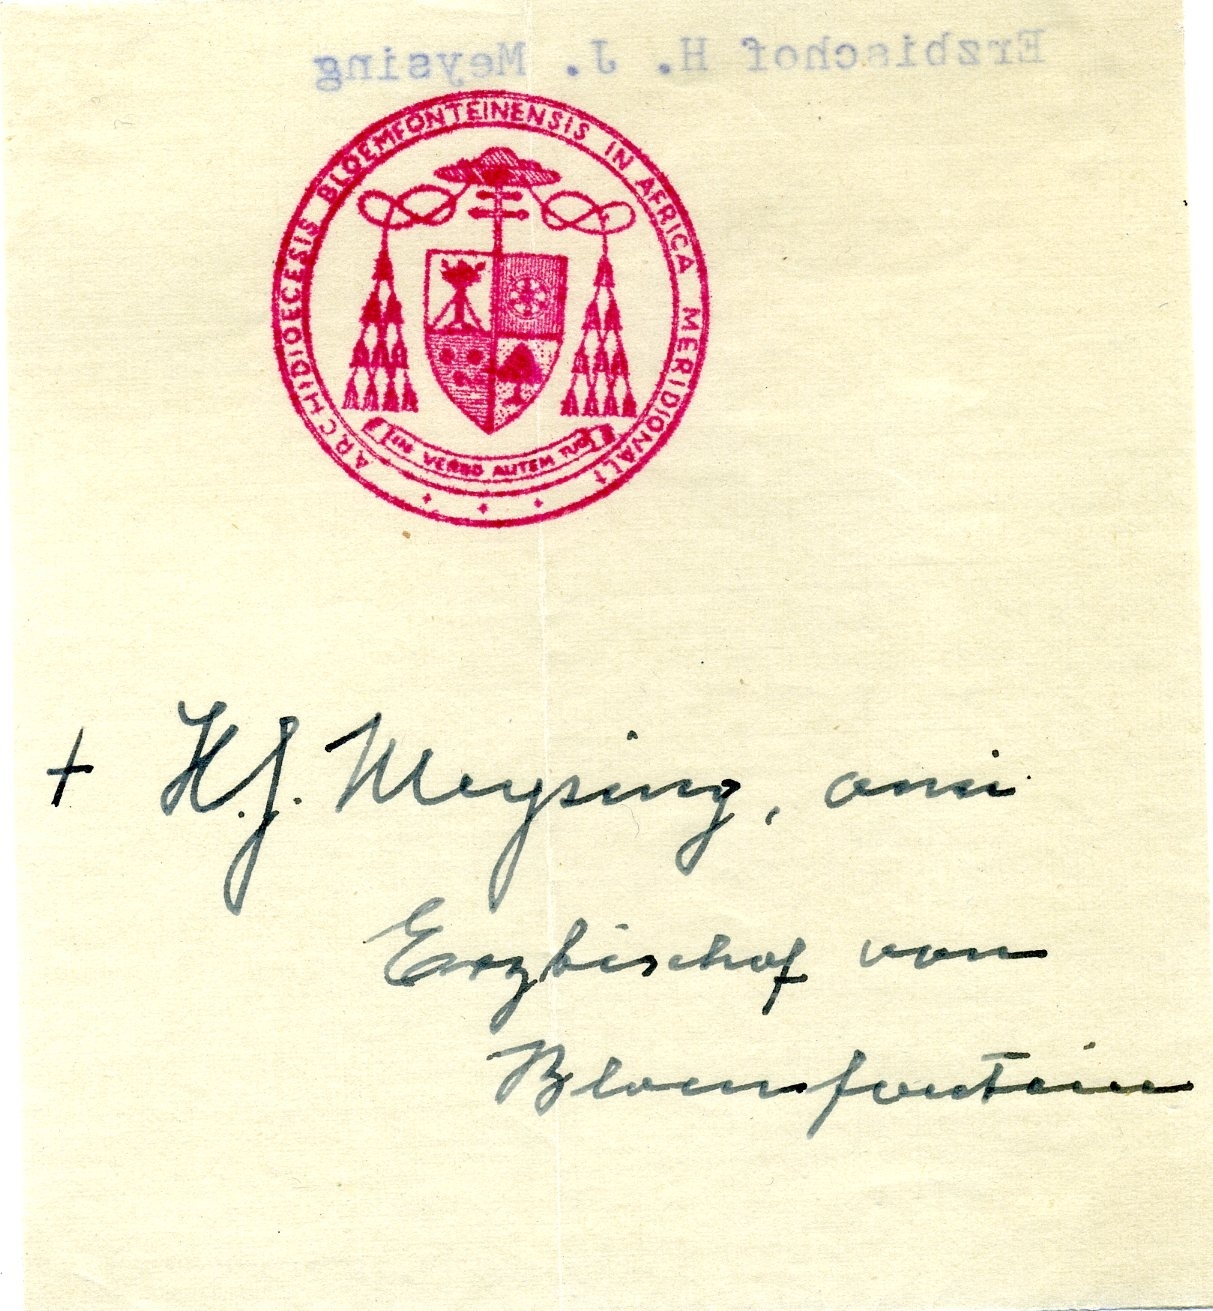 Erzbischof H. J. Meysing
ARCHIDIOECESIS BLOEMFONTEINENSIS IN AFRICA MERIDIONALI
IN VERBO AUTEM TUO
+ H.J. Meysing, omi
Erzbischof von
Bloemfontein